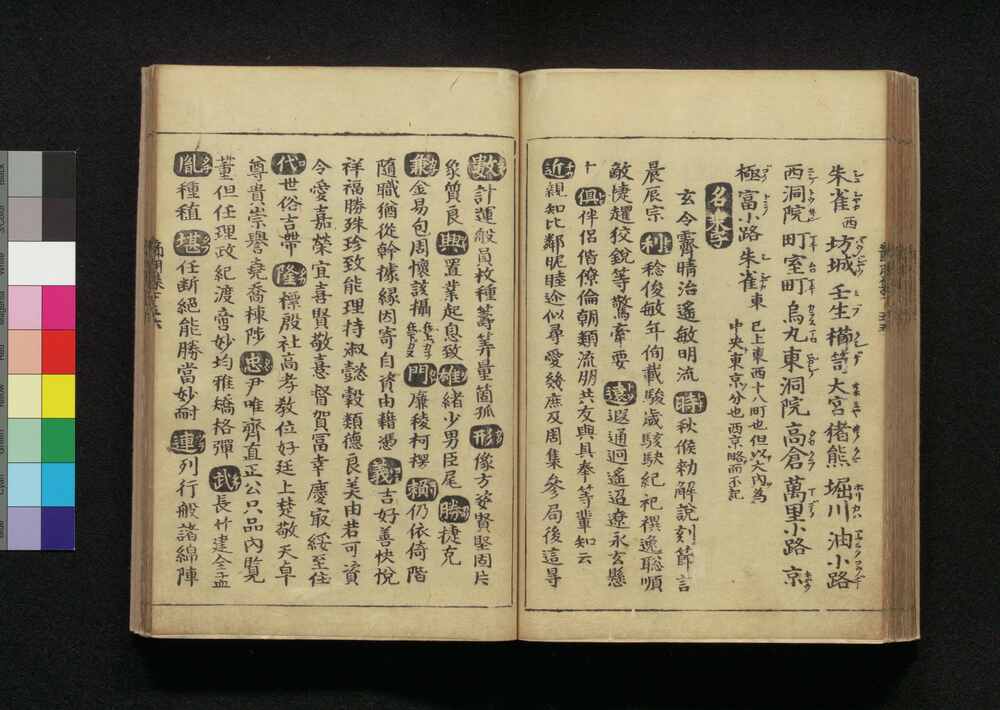 朱雀 西 坊城 壬生 櫛笥 大宮 猪熊 堀川 油小路
西洞院 町 室町 烏丸 東洞院 高倉 萬里小路 京
極 富小路 朱雀 東 已上東西十八町也但以大内為
中央東京分也西京略而不記
名乗字
玄令霽晴治遥敏明流 時 秋候勅解說刻節言
晨辰宗 利 稔俊敏年伺載駿歳駭駃紀祀禩逸聡順
敵揵趯狡銳等驚牽要 遠 遐通迥遥迢遼永玄懸
十 俱 伴侶偕僚倫朝類流朋共友與具奉等輩知云
近 親知比鄰昵睦迩似尋愛幾庶及周集參局後這尋
數 計運般員枚種籌筭量箇孤 形 像方姿賢堅固片
象質良 興 置業起息致 雄 緒少男臣尾 勝 捷克
兼 金易包周懷該攝 門 廉稜柯楞 賴 仍依倚階
隨職猶從幹據縁因寄自資由藉憑 義 吉好善快悅
祥福勝殊珍致能理持淑懿穀類德良美由若可資
令愛嘉榮宜喜賢敬喜督賀冨幸慶寂綏至住
代 世俗吉帶 隆 標殷社高孝教位好廷上楚敬天卓
尊貴崇譽堯喬棟陟 忠 尹唯齊直正公只品内覧
董但任理政紀渡 妙均雅矯格彈 武 長竹建全孟
胤 種稙 堪 任断絕能勝當妙耐 連 列行般諸綿陣